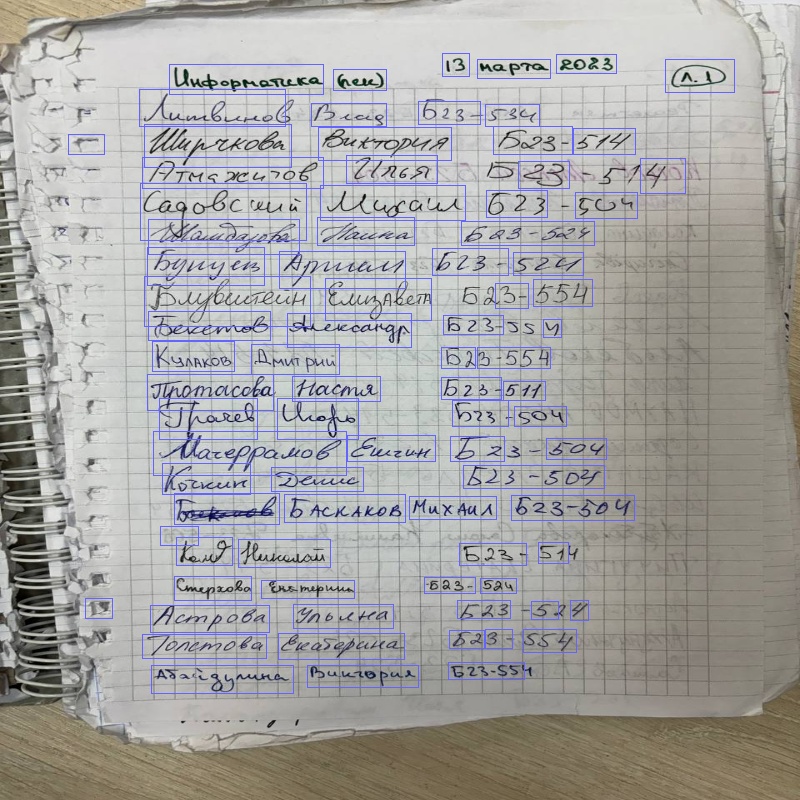 Информатика (лек) 13 марта 2023 (л. 1)
Литвинов Влад Б23-534
Ширчкова Виктория Б23-514
Атмажитов Илья Б23-514
Садовский Михаил Б23-504
Б23-524
Бунуев Артем Б23-524
Блувштейн Елизавета Б23-554
Бекетов Александр Б23-554
Кулаков Дмитрий Б23-554
Протасова Настя Б23-511
Грачев Игорь Б23-504
Магеррамов Елчин Б23-504
Кочкин Денис Б23-504
Баскаков Михаил Б23-504
Николай Б23-514
Стерхова Екатерина Б23-524
Астрова Ульяна Б23-524
Толстова Екатерина Б23-554
Абайдулина Виктория Б23-554